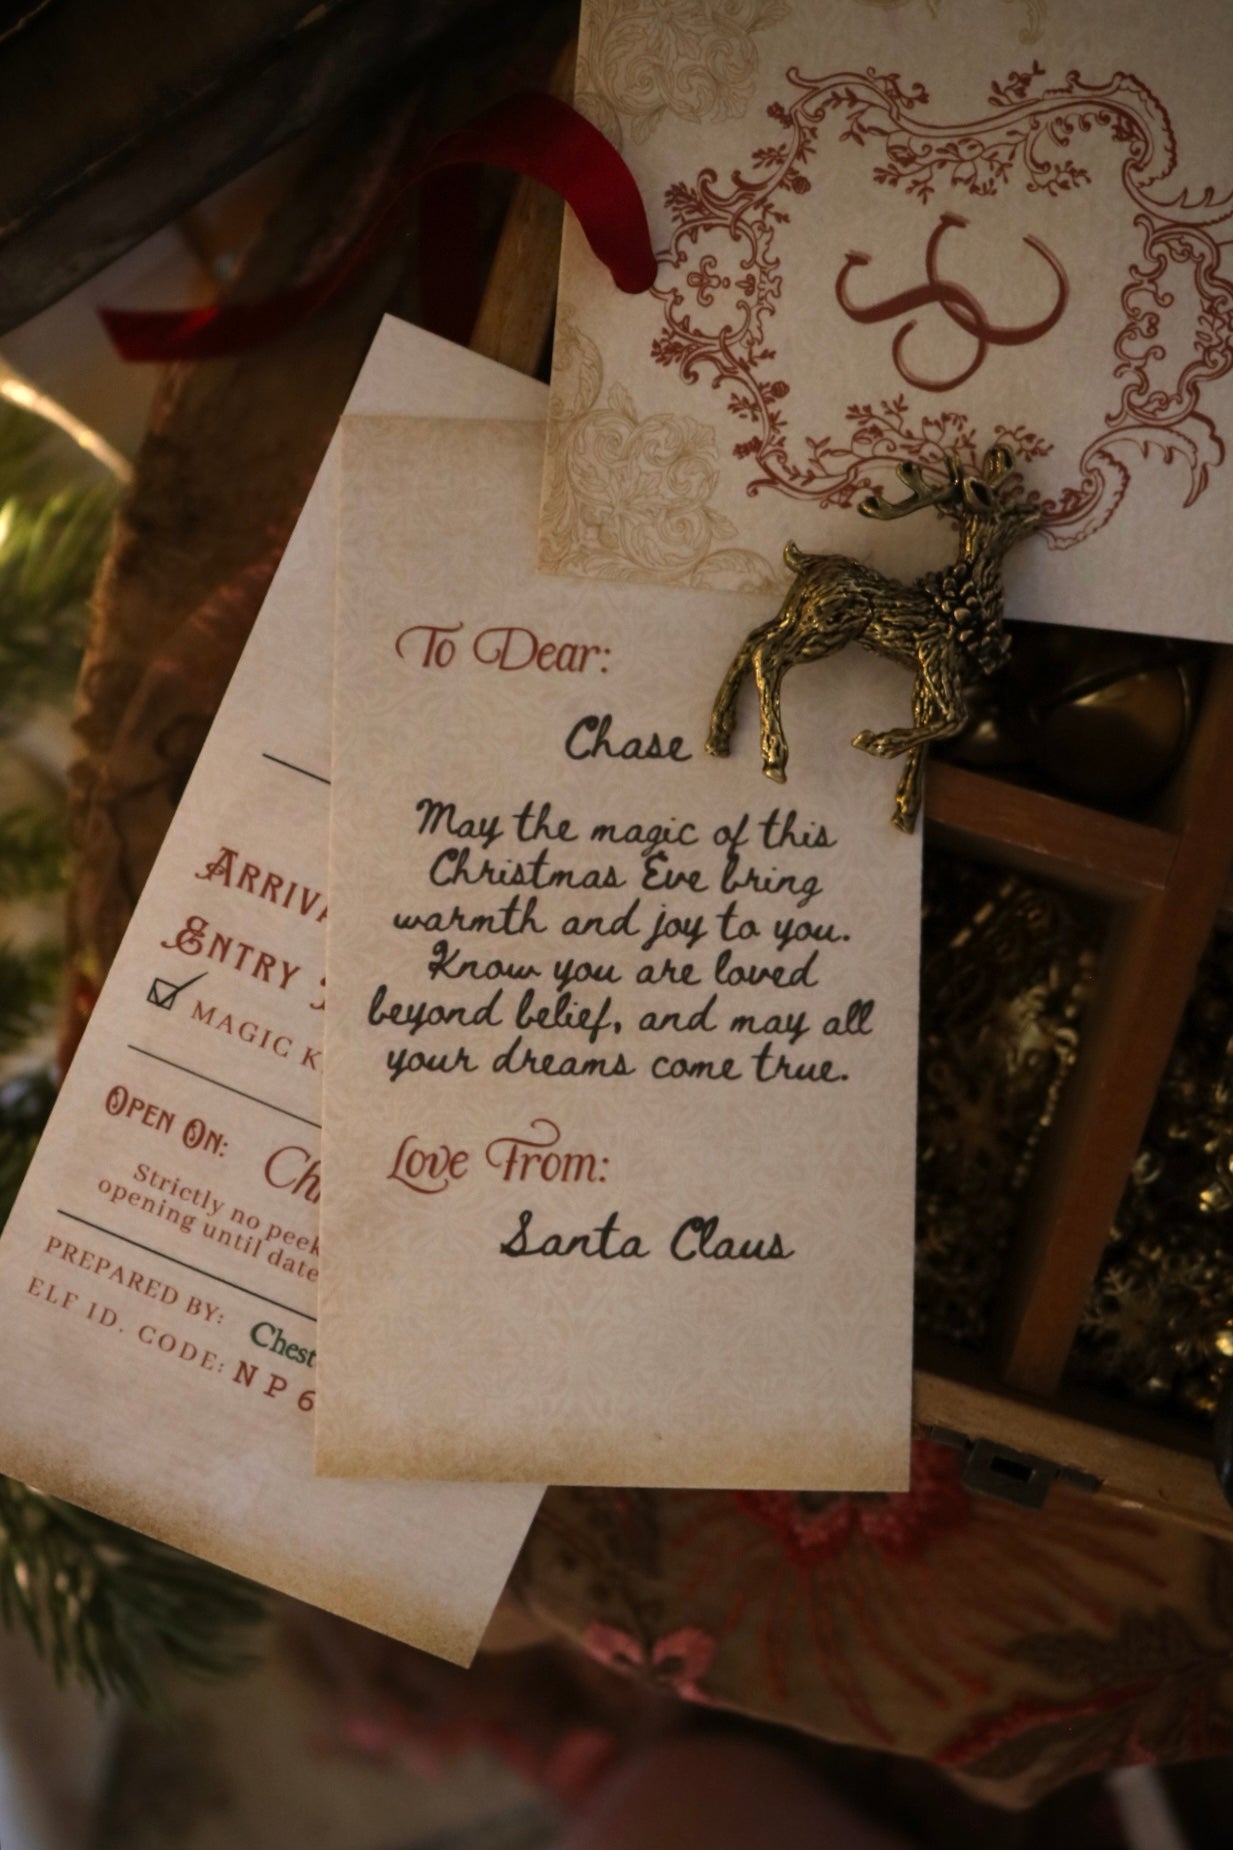 SC
To Dear:
Chase
May the magic of this
Christmas Eve bring
warmth and joy to you.
Know you are loved
beyond belief, and may all
your dreams come true.
Love From:
Santa Claus
ENTRY
MAGIC
OPEN ON:
Strictly no
opening until date
PREPARED BY:
ELF ID. CODE: NP 6